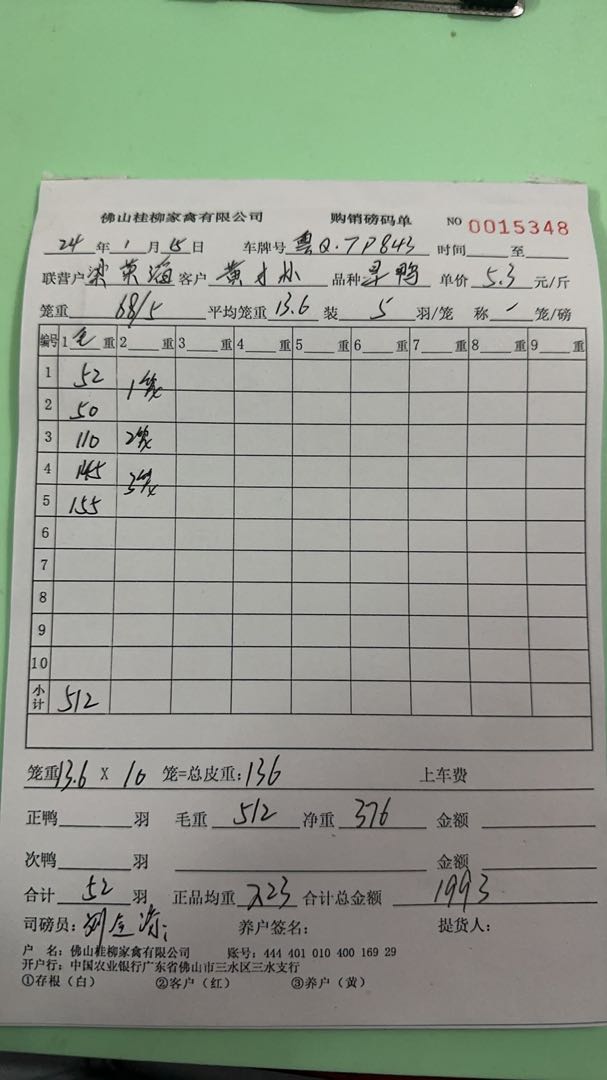 佛山桂柳家禽有限公司 购销磅码单 NO 0015348
24年1月15日 车牌号 粤Q·7P843 时间 至
联营户 梁荣海 客户 黄 品种 鸭 单价 5.3 元/斤
笼重 68/5 平均笼重 13.6 装 5 羽/笼 称 一 笼/磅
编号 1 毛 重 2 重 3 重 4 重 5 重 6 重 7 重 8 重 9 重
1 52 1笼
2 50
3 110 2笼
4 145 3笼
5 155
6
7
8
9
10
小计 512
笼重 13.6 X 10 笼=总皮重:136 上车费
正鸭 羽 毛重 512 净重 376 金额
次鸭 羽 金额
合计 52 羽 正品均重 7.23 合计总金额 1993
司磅员: 养户签名: 提货人:
户 名: 佛山桂柳家禽有限公司 账号: 444 401 010 400 169 29
开户行: 中国农业银行广东省佛山市三水区三水支行
①存根(白) ②客户(红) ③养户(黄)